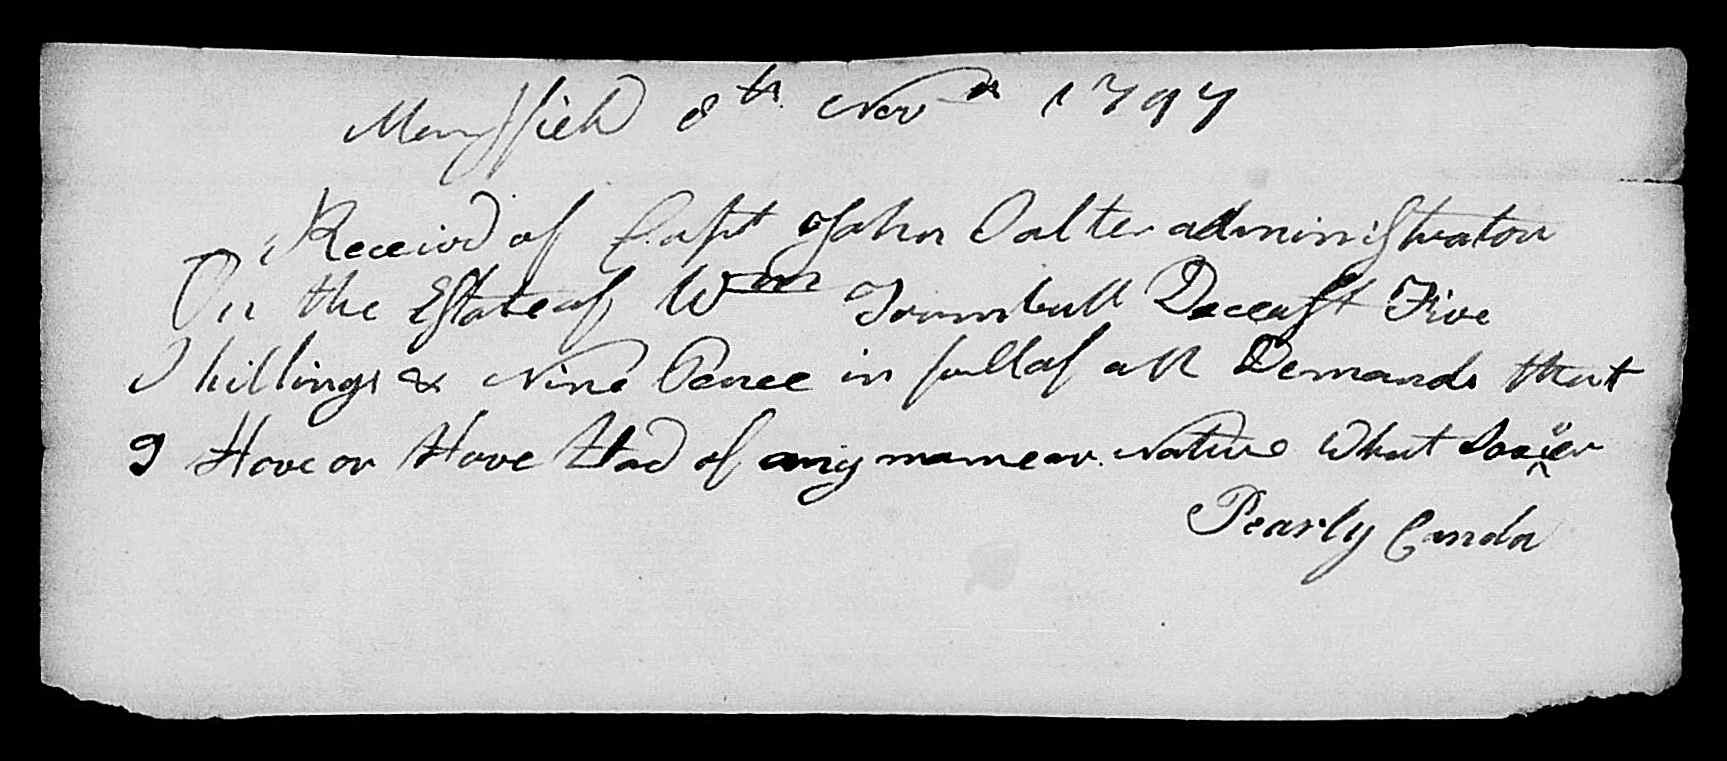 Mansfield 8th Novr 1797
Receivd of Capt John Salter administrator
On the Estate of Wm Trumbull Deceast Five
Shillings & Nine Pence in full of all Demands that
I Have or Have Had of any manner Nature What Soever
Pearly